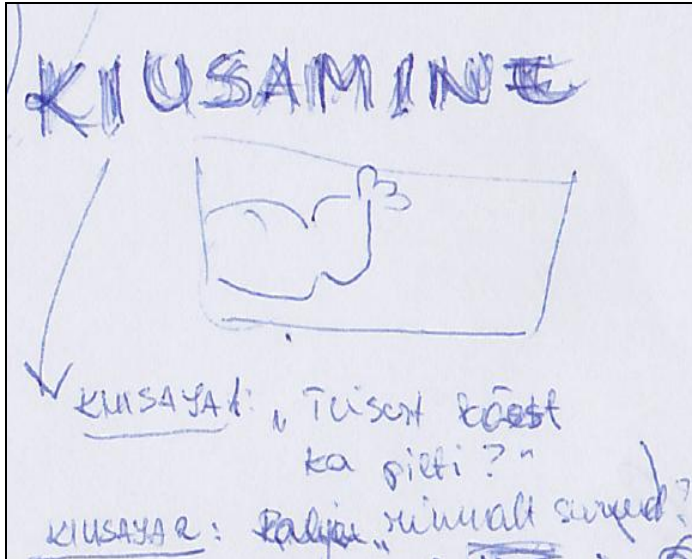 KIUSAMINE
KIUSAJA 1: „Teisest käest
ka pilti?"
KIUSAJA 2: Palju „rinnalt surud?